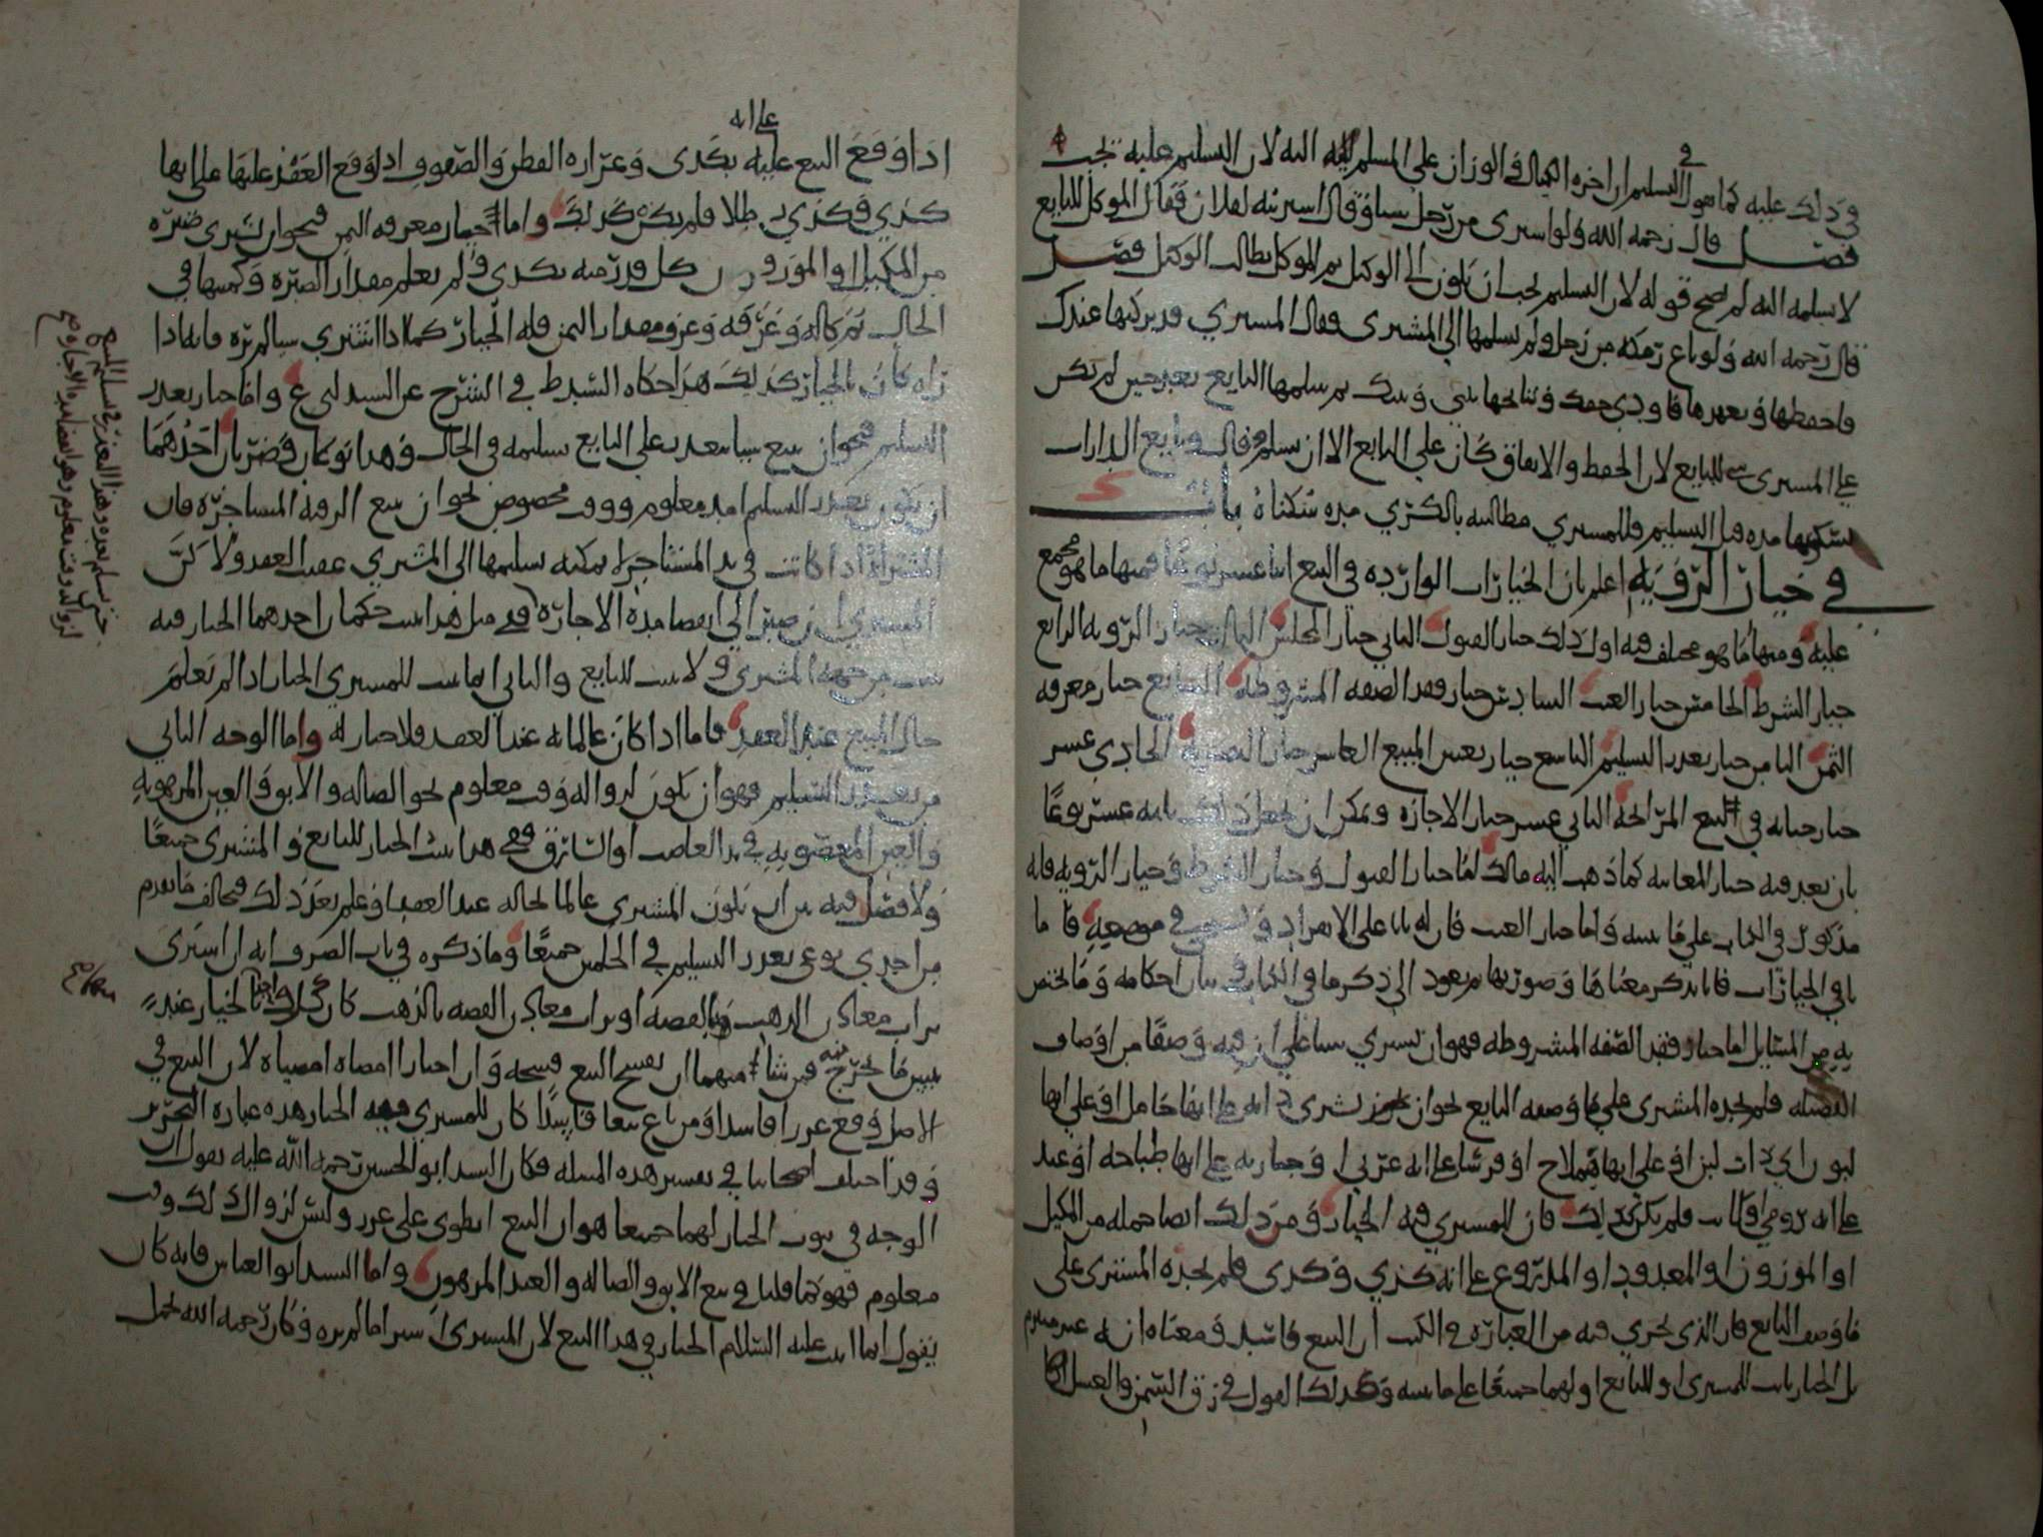 في ذلك عليه كما نقول في التسليم ان اجرة الكيال والوزان على المسلم اليه لان التسليم عليه يجب
فصل قال رحمه الله ولو اشترى من رجل شيا وقال اشتريته لفلان فقال الموكل للبايع
لا تسلمه اليه لم يصح قوله لان التسليم يجب ان يكون الى الوكيل ثم الموكل يطالب الوكيل فصل
قال رحمه الله ولو باع رمكة من رجل ولم يسلمها الى المشتري فقال المشتري قد تركتها عندك
فاحفظها وتعهدها
على المشتري شي للبايع لان الحفظ والانفاق كان على البايع الى ان يسلم وقال
مدة قبل التسليم فللمشتري مطالبته بالكرى مدة سكناه باب
في خيار الروية اعلم بان الخيارات الواردة في البيع اثنا عشر نوعا فمنها ما هو مجمع
عليه ومنها ما هو مختلف فيه اول ذلك خيار القبول الثاني خيار المجلس الثالث خيار الروية الرابع
خيار الشرط الخامس خيار العيب السادس خيار فقد الصفة المشروطة السابع خيار معرفة
الثمن الثامن خيار تعذر التسليم التاسع خيار تعيين المبيع العاشر خيار الحادي عشر
خيار خيانة في البيع المرابحة الثاني عشر خيار الاجازة ويمكن ان يجعل ذلك ثلثه عشر نوعا
بان يعد فيه خيار المغابنة كما ذهب اليه مالك اما خيار القبول وخيار الشرط وخيار الروية فانه
مذكور في الكتاب على ما نبينه واما خيار العيب فان له بابا على الانفراد في موضعه فاما
باقي الخيارات فانا نذكر معناها وصورتها ثم نعود الى ذكر ما في الكتاب في بيان احكامه وما يختص
به من المسايل اما خيار فقد الصفة المشروطة فهو ان يشتري شيا على ان فيه وصفا من اوصاف
الفضيلة فلم يجده المشتري على ما وصفه البايع نحو ان يشتري دابة على انها حامل او على انها
لبون اي ذات لبن او على انها هملاج او فرسا على انه عربي او جارية على انها طباخة او عبد
على انه رومي او كاتب فلم يكن كذلك فان للمشتري فيه الخيار ومن ذلك ايضا جملة من المكيل
او الموزون او المعدود او المذروع على انه كذي وكذى فلم يجده المشتري على
ما وصف البايع فان الذي يجري فيه من العبارة في الكتب ان البيع فاسد ومعناه انه غير مبرم
بل الخيار ثابت للمشتري او للبايع او لهما جميعا على ما نبينه وكذلك القول في زق السمن والعسل
على انه
اذا وقع البيع عليه بكذى وغرارة القطن والصوف اذا وقع العقد عليها على انها
كذي وكذي رطلا فلم يكن كذلك واما خيار معرفة الثمن فنحو ان يشترى صبرة
من المكيل او الموزون كل قدر منه بكذى ولم يعلم مقدار الصبرة وكميتها في
الحال ثم كاله وعرفه وعرف مقدار الثمن فله الخيار كما اذا اشترى شيا لم يره فانه اذا
راه كان بالخيار كذلك هذا حكاه السيد ط في الشرح عن السيد ابي ع واما خيار تعذر
التسليم فنحو ان يبيع شيا يتعذر على البايع تسليمه في الحال وهذا نوعان وضربان احدهما
ان يكون تعذر التسليم امده معلوم ووقت مخصوص نحو ان يبيع الرقبة المستاجرة فان
المشتراة اذا كانت في يد المستاجر لا يمكنه تسليمها الى المشتري عقيب العقد ولا كنَّ
المشتري ان صبر الى انقضا مدة الاجارة ففي مثل هذا يثبت حكمان احدهما الخيار فيه
يثبت من جهة المشتري ولا يثبت للبايع والثاني انما يثبت للمشتري الخيار اذا لم يعلم
حال المبيع عند العقد فاما اذا كان عالما به عند العقد فلا خيار له واما الوجه الثاني
من تعذر التسليم فهو ان يكون لزواله وقت معلوم نحو الضالة والابق والعبد المرهونة
والعين المغصوبة في يد الغاصب او السارق ففي هذا يثبت الخيار للبايع والمشتري جميعا
ولا فصل فيه بين ان يكون المشتري عالما بحاله عند العقد او علم بعد ذلك فيخالف ما تقدم
من احدى نوعي تعذر التسليم في الحكمين جميعا وما ذكره في باب الصرف انه ان اشترى
تراب معادن الذهب بالفضة او تراب معادن الفضة بالذهب كان كل واحد بالخيار عند
تبين ما يخرج منه فمن شاء منهما ان يفسخ البيع فسخه وان اختارا امضاه امضياه لان البيع في
الاصل وقع غررا فاسدا ومن باع بيعا فاسدا كان للمشتري فيه الخيار هذه عبارة التحرير
وقد اختلف اصحابنا في تفسير هذه المسله فكان السيد ابو الحسين رحمة الله عليه يقول ان
الوجه في ثبوت الخيار لهما جميعا هو ان البيع انطوى على غرر وليس لزوال ذلك وقت
معلوم فهو كما قلنا في بيع الابق والضالة والعبد المرهون واما السيد ابو العباس فانه كان
يقول انما اثبت عليه السلام الخيار في هذا البيع لان المشتري اشترا ما لم يره وكان رحمه الله يحمل